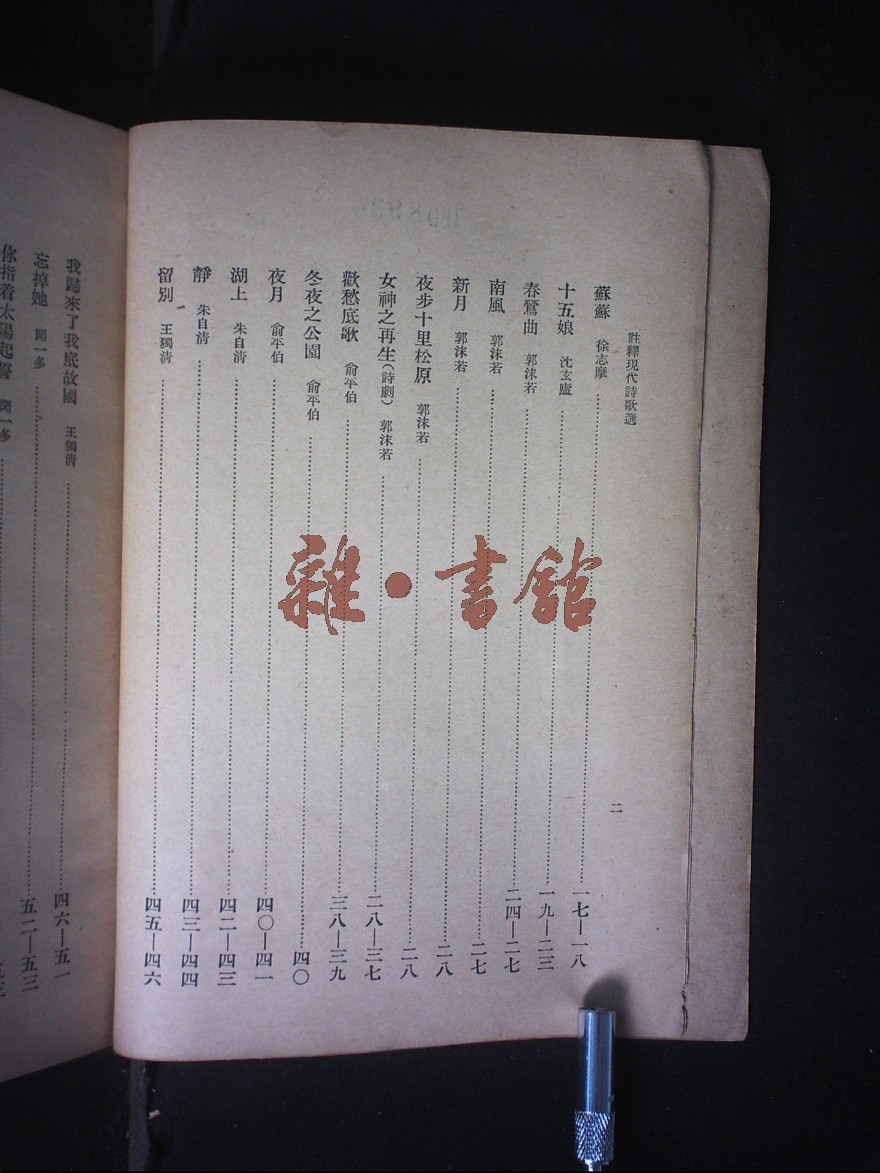 註釋現代詩歌選
二
蘇蘇 徐志摩 一七—一八
十五娘 沈玄廬 一九—二三
春鶯曲 郭沫若 二四—二七
南風 郭沫若 二七
新月 郭沫若 二八
夜步十里松原 郭沫若 二八
女神之再生(詩劇) 郭沫若 二八—三七
歡愁底歌 俞平伯 三八—三九
冬夜之公園 俞平伯 四〇
夜月 俞平伯 四〇—四一
湖上 朱自清 四二—四三
靜 朱自清 四三—四四
留別 王獨清 四五—四六
我歸來了我底故國 王獨清 四六—五一
忘掉她 聞一多 五二—五三
你指着太陽起誓 聞一多
雜·書館